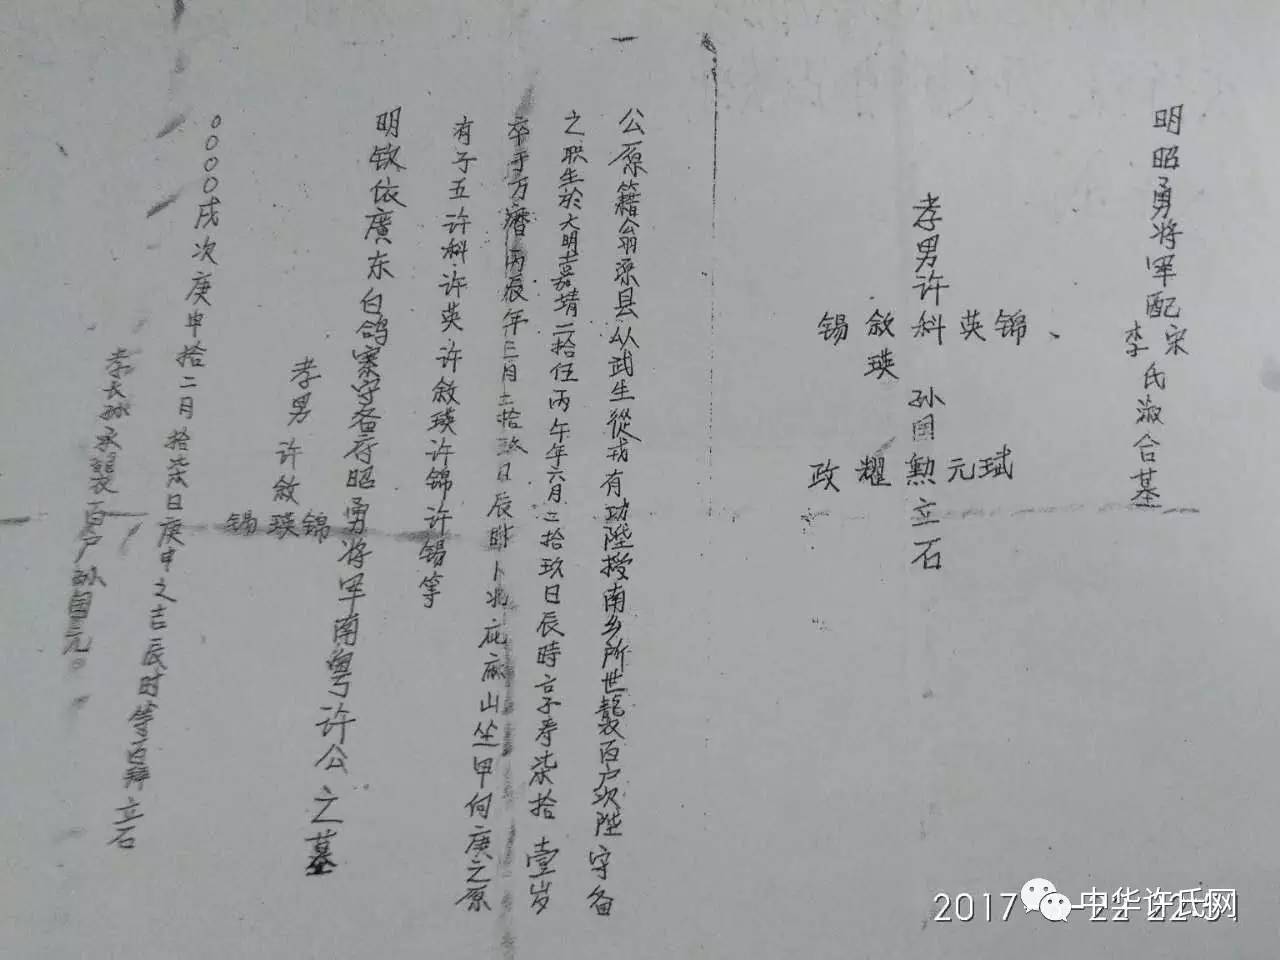 明昭勇将军配宋李氏淑合墓
孝男许科英锦、敘瑛锡
孙国勲元珷耀政立石
公原籍翁源县从武生從戎有功陞授南乡所世襲百户次陞守备
之职生於大明嘉靖二拾伍丙午年六月二拾玖日辰時享寿柒拾壹岁
卒于万曆丙辰年三月二拾玖日辰卧卜兆庇麻山坐甲向庚之原
有子五许科许英许敘瑛许锦许锡等
明钦依廣东白鸽寨守备府昭勇将军南粤许公之墓
孝男许敘锦瑛锡
0000戌次庚申拾二月拾柒日庚申之吉辰时等百拜立石
孝长孙承襲百户孙国元。
2017
中华许氏网